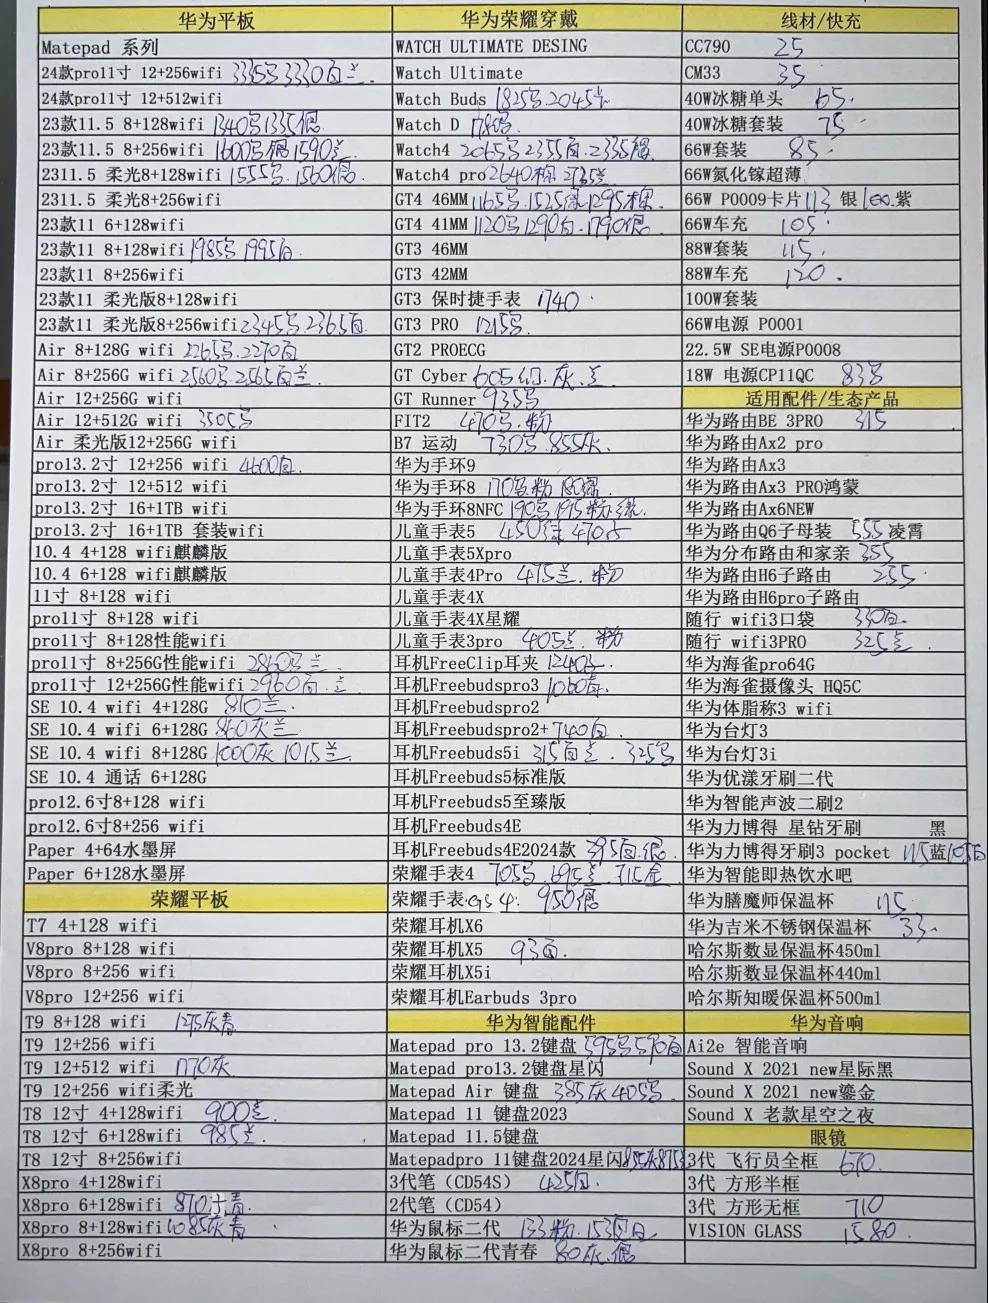 华为平板
Matepad 系列
24款pro11寸 12+256wifi 3335 3330白
24款pro11寸 12+512wifi
23款11.5 8+128wifi 1340 1335银
23款11.5 8+256wifi 1600 银1590
2311.5 柔光8+128wifi 1555 1560银
2311.5 柔光8+256wifi
23款11 6+128wifi
23款11 8+128wifi 1985 1995白
23款11 8+256wifi
23款11 柔光版8+128wifi
23款11 柔光版8+256wifi 2345 2365白
Air 8+128G wifi 2265 2270白
Air 8+256G wifi 2560 2565白
Air 12+256G wifi
Air 12+512G wifi 3505
Air 柔光版12+256G wifi
pro13.2寸 12+256 wifi 4600白
pro13.2寸 12+512 wifi
pro13.2寸 16+1TB wifi
pro13.2寸 16+1TB 套装wifi
10.4 4+128 wifi麒麟版
10.4 6+128 wifi麒麟版
11寸 8+128 wifi
pro11寸 8+128 wifi
pro11寸 8+128性能wifi
pro11寸 8+256G性能wifi 2860
pro11寸 12+256G性能wifi 2960白
SE 10.4 wifi 4+128G 810兰
SE 10.4 wifi 6+128G 860灰兰
SE 10.4 wifi 8+128G 1000灰 1015兰
SE 10.4 通话 6+128G
pro12.6寸8+128 wifi
pro12.6寸8+256 wifi
Paper 4+64水墨屏
Paper 6+128水墨屏
荣耀平板
T7 4+128 wifi
V8pro 8+128 wifi
V8pro 8+256 wifi
V8pro 12+256 wifi
T9 8+128 wifi 1275灰青
T9 12+256 wifi
T9 12+512 wifi 1770灰
T9 12+256 wifi柔光
T8 12寸 4+128wifi 900兰
T8 12寸 6+128wifi 985兰
T8 12寸 8+256wifi
X8pro 4+128wifi
X8pro 6+128wifi 870 青
X8pro 8+128wifi 1085灰青
X8pro 8+256wifi
华为荣耀穿戴
WATCH ULTIMATE DESING
Watch Ultimate
Watch Buds 1825 2045
Watch D 1780
Watch4 2065 2355 2335银
Watch4 pro 2640棕 2735
GT4 46MM 1165 1525 1295棕
GT4 41MM 1120 1290白 1790银
GT3 46MM
GT3 42MM
GT3 保时捷手表 1740
GT3 PRO 1215
GT2 PROECG
GT Cyber 605幻.灰.兰
GT Runner 935
FIT2 470 粉
B7 运动 730 855灰
华为手环9
华为手环8 170 粉 180
华为手环8NFC 190 195粉
儿童手表5 450 470
儿童手表5Xpro
儿童手表4Pro 415兰.粉
儿童手表4X
儿童手表4X星耀
儿童手表3pro 405兰.粉
耳机FreeClip耳夹 1240
耳机Freebudspro3 1060
耳机Freebudspro2
耳机Freebudspro2+ 740白
耳机Freebuds5i 315白兰. 325
耳机Freebuds5标准版
耳机Freebuds5至臻版
耳机Freebuds4E
耳机Freebuds4E2024款 395白.银
荣耀手表4 705 695 715金
荣耀手表.GS 4. 950银
荣耀耳机X6
荣耀耳机X5 93白
荣耀耳机X5i
荣耀耳机Earbuds 3pro
华为智能配件
Matepad pro 13.2键盘 595 590白
Matepad pro13.2键盘星闪
Matepad Air 键盘 385灰 405
Matepad 11 键盘2023
Matepad 11.5键盘
Matepadpro 11键盘2024星闪 855灰875
3代笔（CD54S） 425白
2代笔（CD54）
华为鼠标二代 133粉.153白
华为鼠标二代青春 80灰.银
线材/快充
CC790 25
CM33 35
40W冰糖单头 65
40W冰糖套装 75
66W套装 85
66W氮化镓超薄
66W P0009卡片113 银100.紫
66W车充 105
88W套装 115
88W车充 120
100W套装
66W电源 P0001
22.5W SE电源P0008
18W 电源CP11QC 83
适用配件/生态产品
华为路由BE 3PRO 315
华为路由Ax2 pro
华为路由Ax3
华为路由Ax3 PRO鸿蒙
华为路由Ax6NEW
华为路由Q6子母装 555 凌霄
华为分布路由和家亲 355
华为路由H6子路由 255
华为路由H6pro子路由
随行 wifi3口袋 330白
随行 wifi3PRO 325兰
华为海雀pro64G
华为海雀摄像头 HQ5C
华为体脂称3 wifi
华为台灯3
华为台灯3i
华为优漾牙刷二代
华为智能声波二刷2
华为力博得 星钻牙刷 黑
华为力博得牙刷3 pocket 115蓝105白
华为智能即热饮水吧
华为膳魔师保温杯 115
华为吉米不锈钢保温杯 33
哈尔斯数显保温杯450ml
哈尔斯数显保温杯440ml
哈尔斯知暖保温杯500ml
华为音响
Ai2e 智能音响
Sound X 2021 new星际黑
Sound X 2021 new鎏金
Sound X 老款星空之夜
眼镜
3代 飞行员全框 670
3代 方形半框
3代 方形无框 710
VISION GLASS 1580